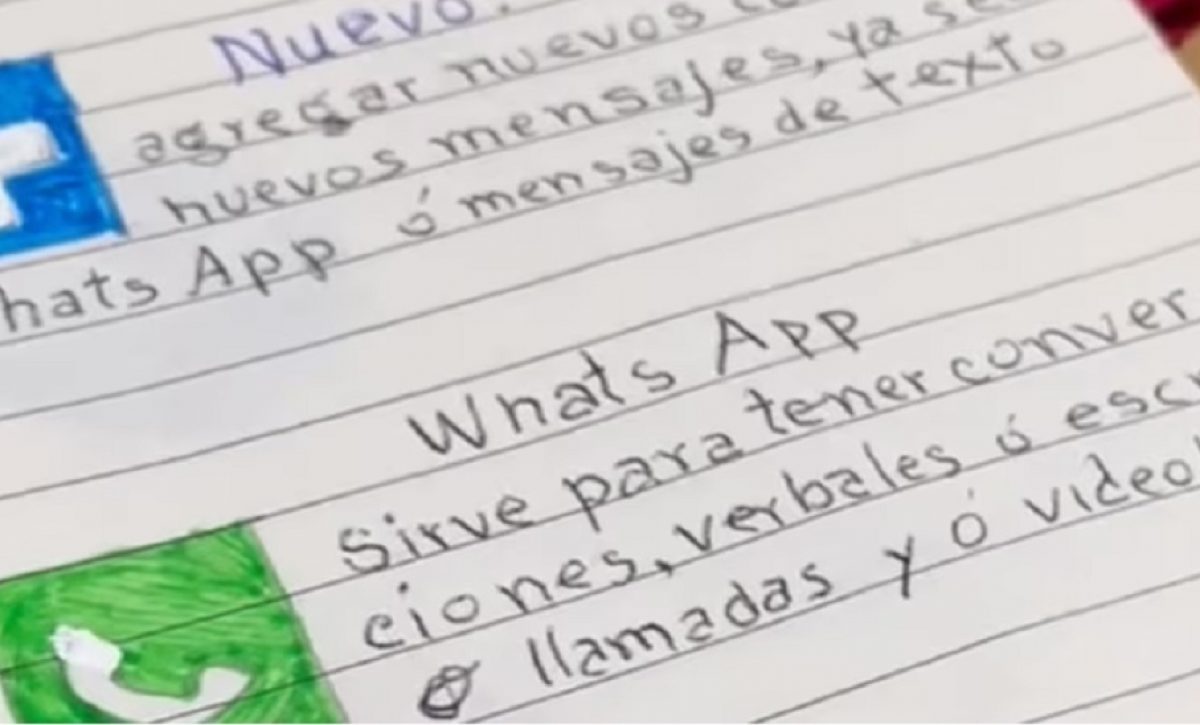 Nuevo.
agregar nuevos
nuevos mensajes, ya
hats App ó mensajes de texto
Whats App
Sirve para tener conver
ciones, verbales ó esc
llamadas y ó video